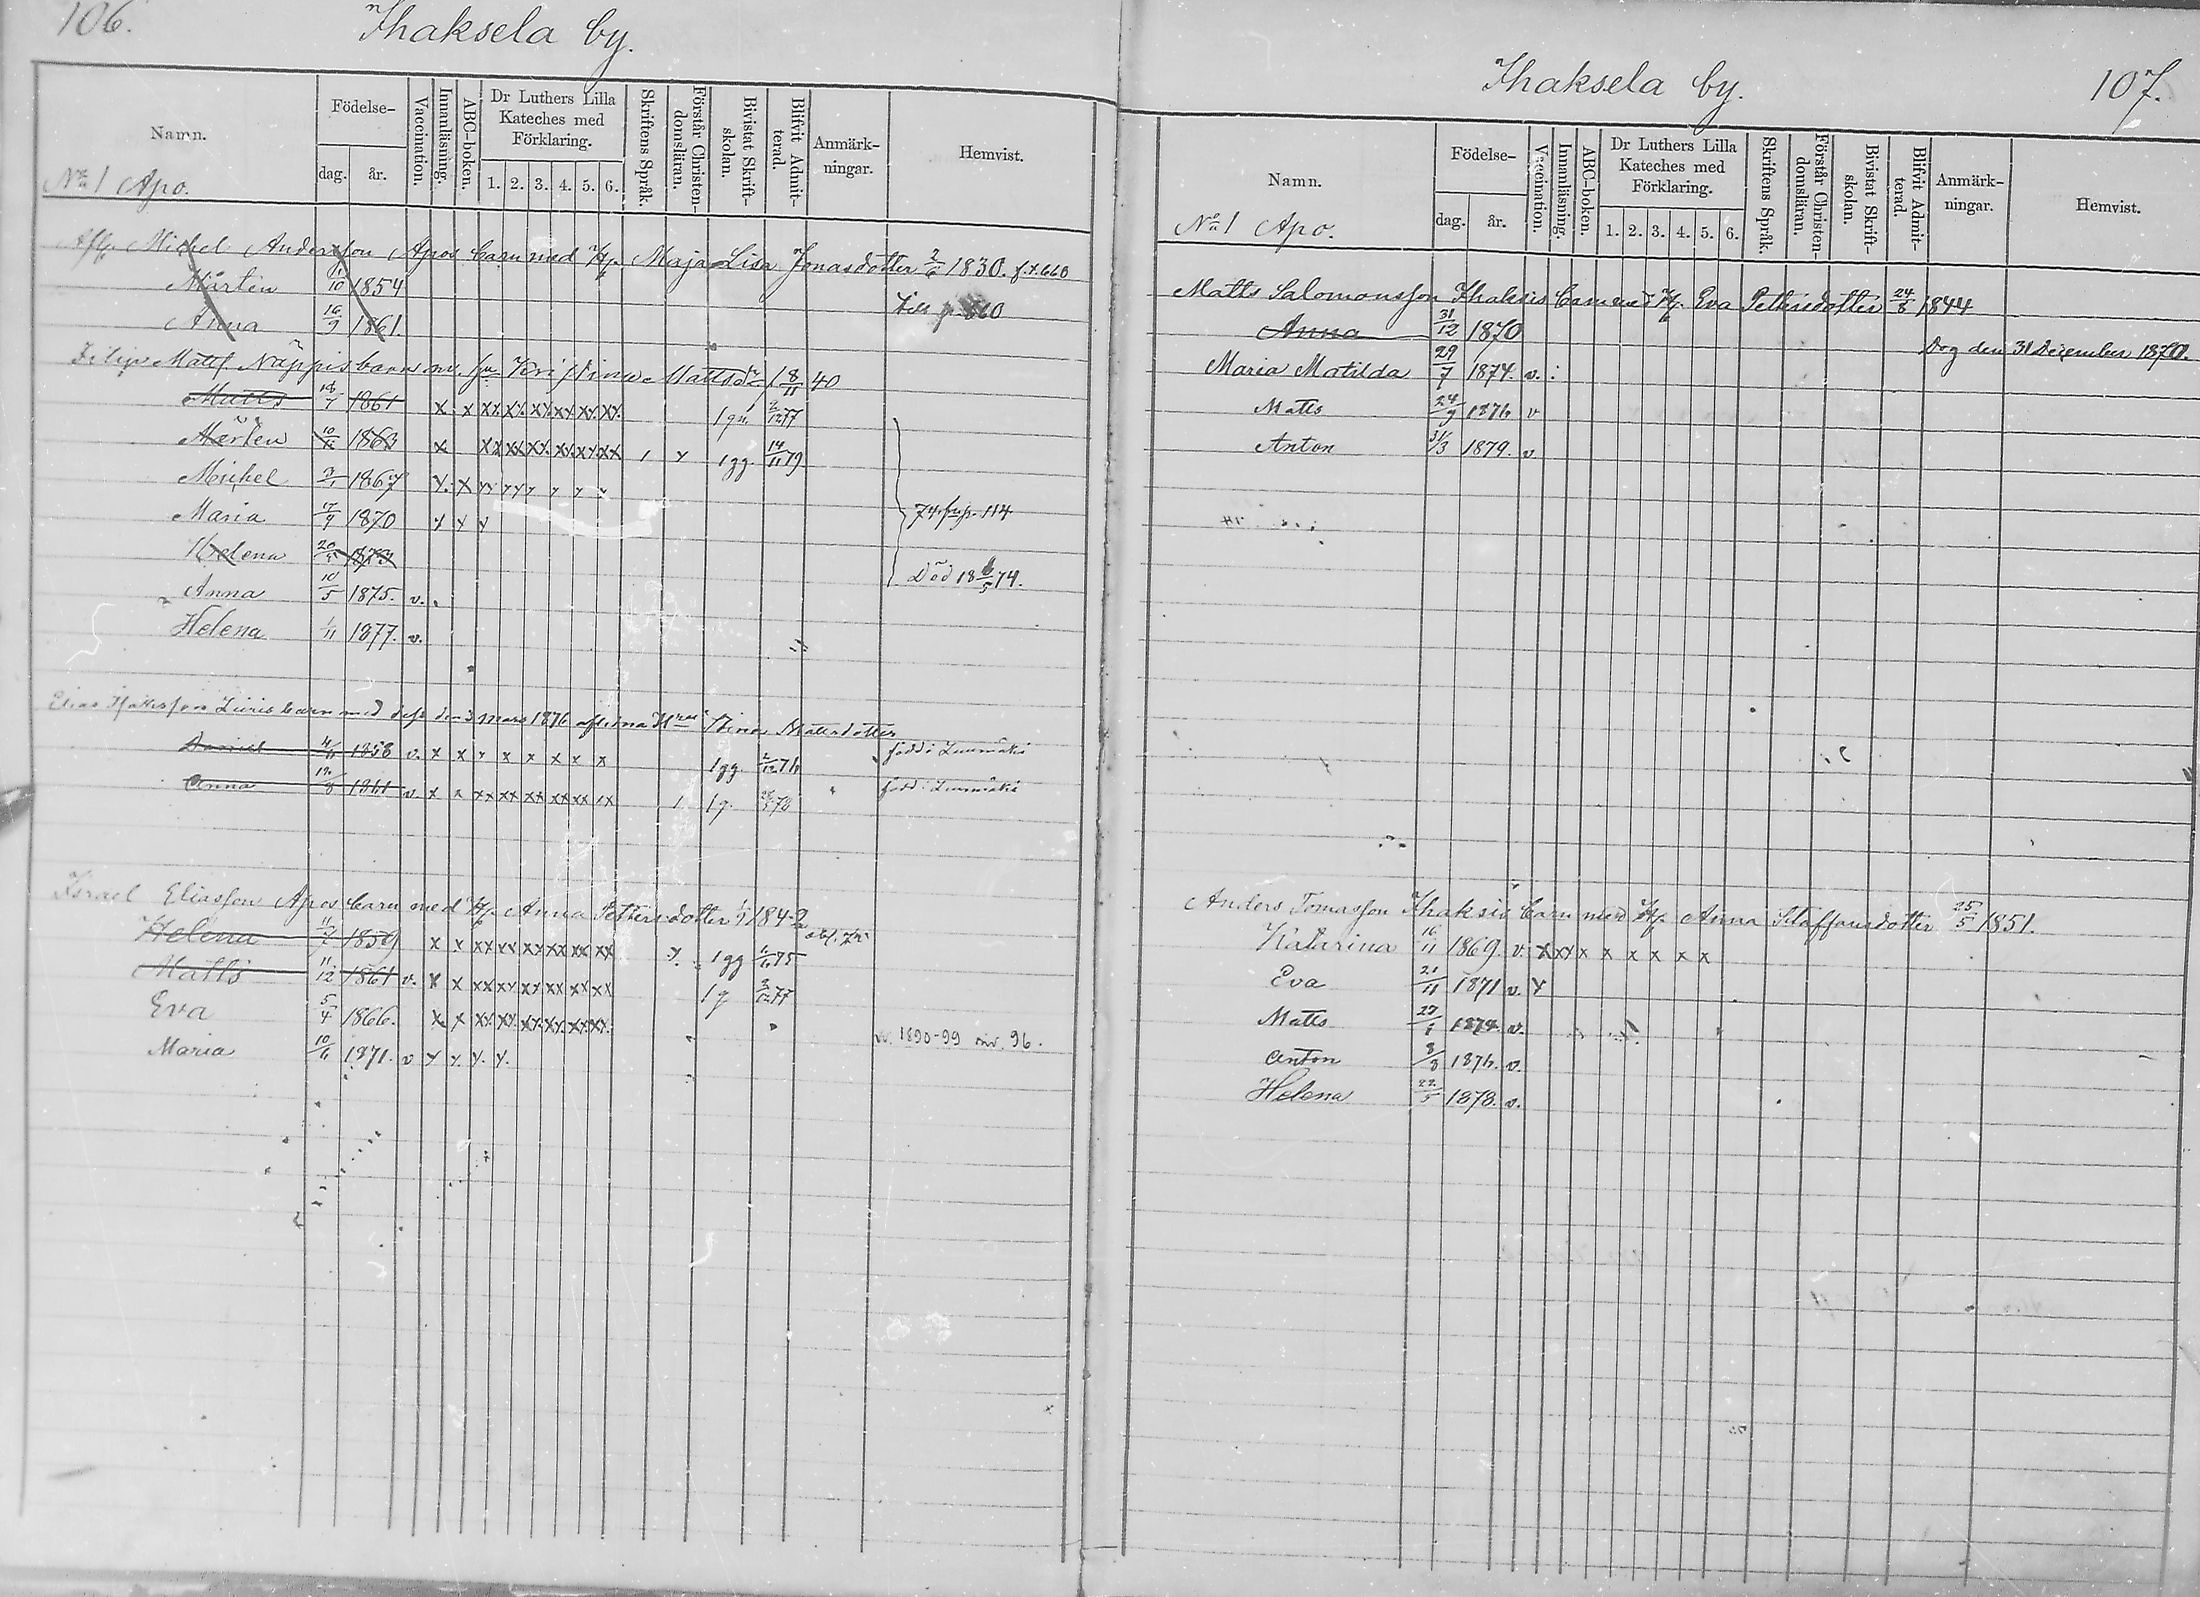 106.
Ihaksela by.
Namn.
Födelse-
dag.
år.
Vaccination.
Innanläsning.
ABC-boken.
Dr Luthers Lilla Kateches med Förklaring.
1. 2. 3. 4. 5. 6.
Skriftens Språk.
Förstår Christen-domsläran.
Bivistat Skrift-skolan.
Blifvit Admit-terad.
Anmärk-ningar.
Hemvist.
No 1 Apo.
Michel Andersson Apos barn med H. Maja Lisa Jonasdotter 2/6 1830. f.s. 660
Mårten 1/10 1854
Anna 16/9 1861
Filip Matts Näppis barn m. hu Kristina Mattsdr 18/11 40
Matts 18/7 1861 x x xx xx xx xx xx xx 1 gn 2/12 77
Mårten 10/11 1863 x xx xx xx xx xx xx 1 x 1 gg. 14/11 79
Michel 1867 x. x
Maria 7/9 1870 x x x
74 p. 114
Helena 20/5 1873
Död 18 6/5 74.
Anna 10/5 1875. v.
Helena 1/11 1877. v.
Elias barn med dess den 3 mars 1876 aflidna Stina Mattsdotter
Daniel 4/11 1858 v. x x x x x x x x 1 gg 2/12 76 född i Luumäki
Anna 12/8 1861 v. x x xx xx xx xx xx xx 1 1 g. 78 född i Luumäki
Israel Eliasson Apos barn med H. Anna Pettersdotter 1/9 1842
Helena 11/7 1859 x x xx xx xx xx xx xx x. 1 gg 75
Matts 11/12 1861 v. x x xx xx xx xx xx xx 1 g 2/12 77
Eva 5/4 1866. x x xx xx xx xx xx xx
1890-99 96.
Maria 10/6 1871. v x x. x. x.
Ihaksela by.
107.
Namn.
Födelse-
dag.
år.
Vaccination.
Innanläsning.
ABC-boken.
Dr Luthers Lilla Kateches med Förklaring.
1. 2. 3. 4. 5. 6.
Skriftens Språk.
Förstår Christen-domsläran.
Bivistat Skrift-skolan.
Blifvit Admit-terad.
Anmärk-ningar.
Hemvist.
No 1 Apo.
Matts Salomonsson Ihaksis barn med H. Eva Pettersdotter 24/8 1844
Anna 31/12 1870
Dog den 31 December 1870.
Maria Matilda 29/7 1874. v.
Matts 24/9 1876 v
Anton 31/3 1879. v
Anders Tomasson Ihaksis barn med H. Anna Staffansdotter 25/5 1851.
Katarina 16/11 1869. v. x xx x x x x x x
Eva 21/11 1871 v. x
Matts 27/1 1874. v.
Anton 8/8 1876. v.
Helena 22/5 1878. v.